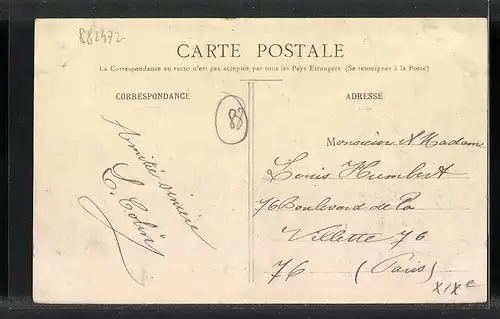 882472
CARTE POSTALE
La Correspondance au recto n'est pas acceptée par tous les Pays Etrangers (Se renseigner à la Poste)
CORRESPONDANCE
88
Amitié sincère
L. Colin
ADRESSE
Monsieur et Madame
Louis Humbert
76 Boulevard de La
Villette 76
76 (Paris)
XIXe